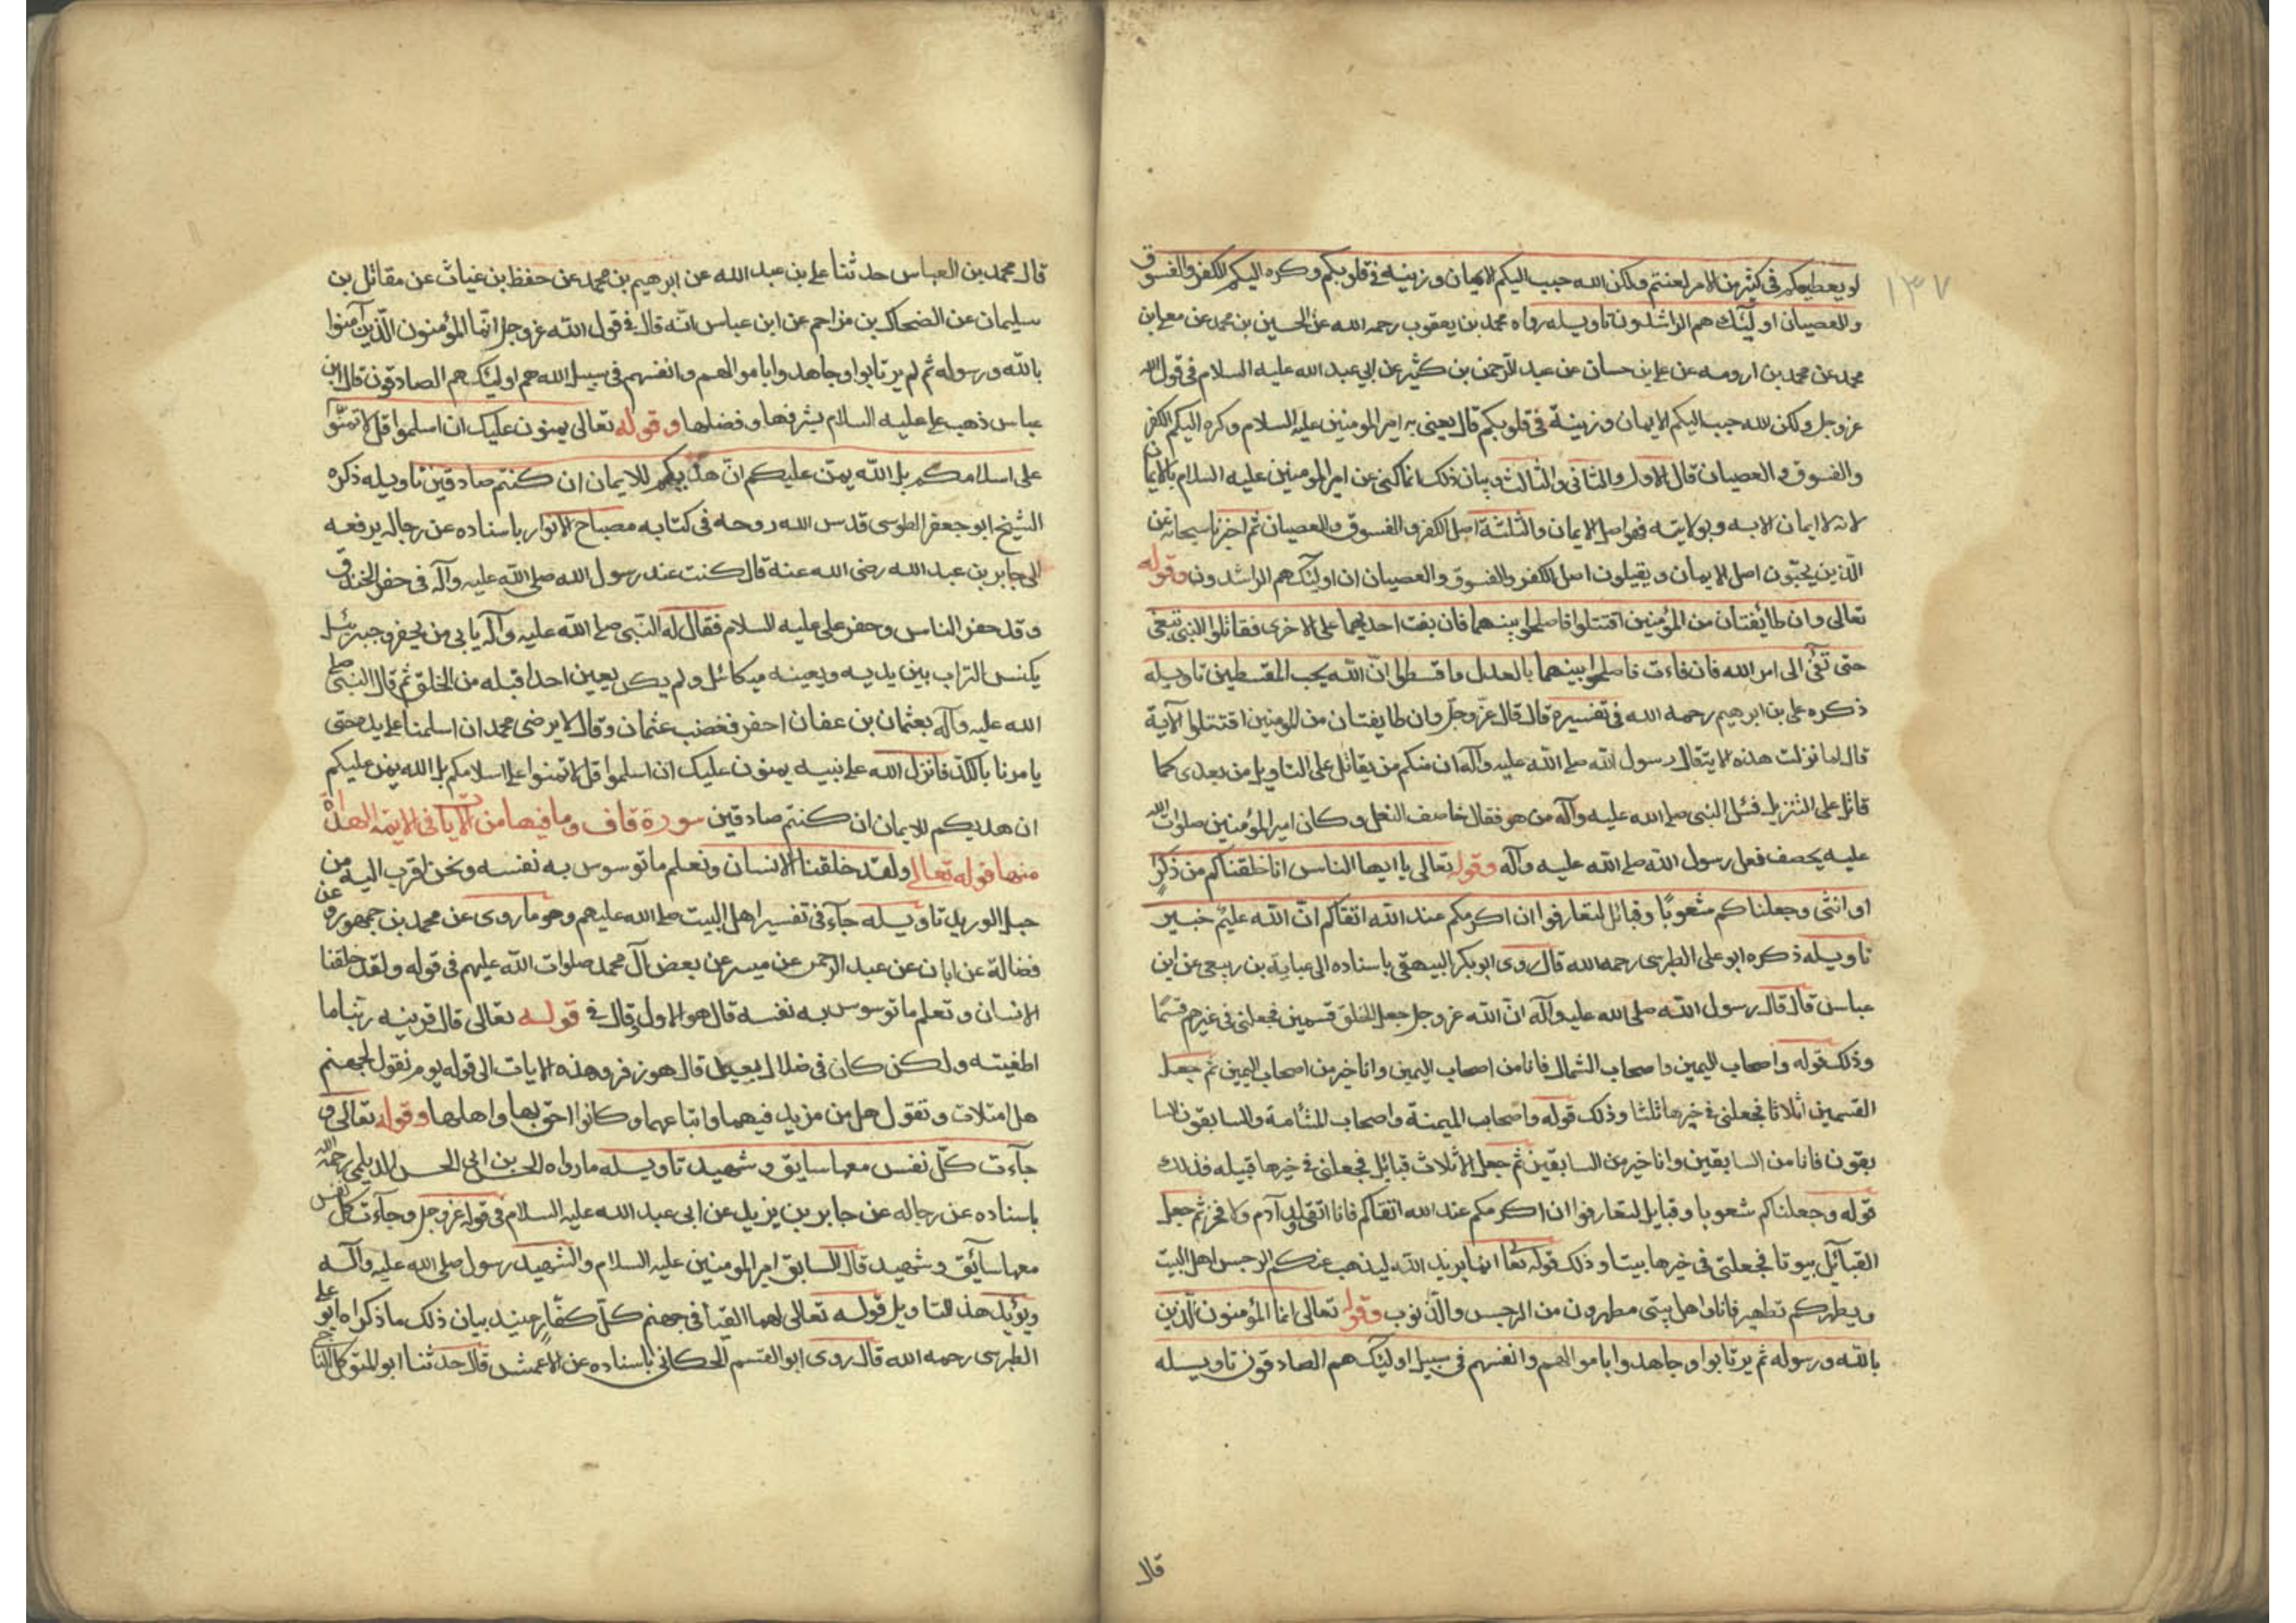 ١٣٧
لو يعطيعكم في كثير من الامر لعنتم ولكن الله حبب اليكم الايمان وزينه في قلوبكم وكره اليكم الكفر والفسوق
والعصيان اولئك هم الراشدون تاويله رواه محمد بن يعقوب رحمه الله عن الحسين بن محمد عن معلى بن
محمد عن محمد بن ارومه عن على بن حسان عن عبد الرحمن بن كثير عن ابي عبد الله عليه السلام في قول الله
عز وجل ولكن الله حبب اليكم الايمان وزينه في قلوبكم قال يعنى به امير المومنين عليه السلام وكره اليكم الكفر
والفسوق والعصيان قال الاول والثاني والثالث وبيان ذلك انما كنى عن امير المومنين عليه السلام بالايمان
لانه لا ايمان الا به وبولايته فهو اصل الايمان والثلثة اصل الكفر والفسوق والعصيان ثم اخبرنا سبحانه عن
الّذين يحبّون اصل الايمان ويقيلون اصل الكفر والفسوق والعصيان ان اولئك هم الراشدون وقوله
تعالى وان طائفتان من المؤمنين اقتتلوا فاصلحوا بينهما فان بغت احديهما على الاخرى فقاتلوا التى تبغى
حتى تفئ الى امر الله فان فاءت فاصلحوا بينهما بالعدل واقسطوا انّ الله يحب المقسطين تاويله
ذكره على بن ابرهيم رحمه الله في تفسيره قال قال عزّ وجلّ وان طايفتان من المومنين اقتتلوا الآية
قال لما نزلت هذه الاية قال رسول الله صلى الله عليه وآله ان منكم من يقاتل على التاويل من بعدى كما
قاتل على التنزيل فسئل النبى صلى الله عليه وآله من هو فقال خاصف النعل وكان امير المؤمنين صلوات الله
عليه يخصف نعل رسول الله صلى الله عليه وآله وقوله تعالى يا ايها الناس انا خلقناكم من ذكرٍ
او انثى وجعلناكم شعوبًا وقبائل لتعارفوا ان اكرمكم عند الله اتقاكم انّ الله عليم خبير
تاويله ذكره ابو على الطبرسى رحمه الله قال روى ابو بكر البيهقى باسناده الى عباية بن ربعى عن ابن
عباس قال قال رسول الله صلى الله عليه وآله انّ الله عز وجل جعل الخلق قسمين فجعلنى في خيرهم قسمًا
وذلك قوله واصحاب اليمين واصحاب الشمال فانا من اصحاب اليمين وانا خير من اصحاب اليمين ثم جعل
القسمين اثلاثا فجعلنى في خيرها ثلثا وذلك قوله واصحاب الميمنة واصحاب المشامة والسابقون السا
بقون فانا من السابقين وانا خير من السابقين ثم جعل الاثلاث قبائل فجعلنى في خيرها قبيله فذلك
قوله وجعلناكم شعوبا وقبايل لتعارفوا ان اكرمكم عند الله اتقاكم فانا اتقى ولد آدم ولا فخر ثم جعل
القبائل بيوتا فجعلنى في خيرها بيتا وذلك قوله تعا انما يريد الله ليذهب عنكم الرجس اهل البيت
ويطهركم تطهير فانا واهل بيتى مطهرون من الرجس والذّنوب وقوله تعالى انما المؤمنون الّذين
بالله ورسوله ثم يرتابوا وجاهدوا باموالهم وانفسهم في سبيل اولئك هم الصادقون تاويله
قال
قال محمد بن العباس حدثنا على بن عبد الله عن ابرهيم بن محمد عن حفظ بن غياث عن مقاتل بن
سليمان عن الضحاك بن مزاحم عن ابن عباس انّه قال في قول الله عز وجل انّما المؤمنون الّذين آمنوا
بالله ورسوله ثم لم يرتابوا وجاهدوا باموالهم وانفسهم في سبيل الله هم اولئك هم الصادقون قال ابن
عباس ذهب على عليه السلام بشرفها وفضلها وقوله تعالى يمنون عليك ان اسلموا قل لا تمنّوا
على اسلامكم بل الله يمنّ عليكم انّ هديكم للايمان ان كنتم صادقين تاويله ذكره
الشيخ ابو جعفر الطوسى قدس الله روحه في كتابه مصباح الانوار باسناده عن رجاله يرفعه
الى جابر بن عبد الله رضى الله عنه قال كنت عند رسول الله صلى الله عليه وآله في حفر الخندق
وقد حفر الناس وحفر على عليه السلام فقال له النّبى صلى الله عليه وآله يابى من يحفر وجبرئيل
يكنس التراب بين يديه ويعينه ميكائل ولم يكن يعين احدا قبله من الخلق ثم قال النبى صلى
الله عليه وآله بعثمان بن عفان احفر فغضب عثمان وقال لا يرضى محمد ان اسلمنا على يده حتى
يامرنا بالكدّ فانزل الله على نبيه يمنون عليك ان اسلموا قل لا تمنوا على اسلامكم بل الله يمن عليكم
ان هديكم للايمان ان كنتم صادقين سورة قاف وما فيها من الايات في الايمة الهداة
منها قوله تعالى ولقد خلقنا الانسان ونعلم ما توسوس به نفسه ونحن اقرب اليه من
حبل الوريد تاويله جآء في تفسير اهل البيت صلى الله عليهم وهو ما روى عن محمد بن جمهور عن
فضالة عن ابان عن عبد الرحمن عن ميسر عن بعض آل محمد صلوات الله عليهم في قوله ولقد خلقنا
الانسان ونعلم ما توسوس به نفسه قال هو الاول وقال في قوله تعالى قال قرينه ربّنا ما
اطغيته ولكن كان في ضلال بعيد قال هو زفر وهذه الايات الى قوله يوم نقول لجهنم
هل امتلات وتقول هل من مزيد فيهما واتباعهما وكانوا احق بها واهلها وقوله تعالى و
جآءت كلّ نفس معها سايق وشهيد تاويله ما رواه الحسن بن ابى الحسن الديلمى رحمه الله
باسناده عن رجاله عن جابر بن يزيد عن ابى عبد الله عليه السلام في قوله عز وجل وجآءت كل نفس
معها سآئق وشهيد قال السابق امير المومنين عليه السلام والشهيد رسول صلى الله عليه وآله
ويؤيد هذا التاويل قوله تعالى لهما القيا في جهنم كلّ كفّار عنيد بيان ذلك ما ذكراه ابو على
الطبرسى رحمه الله قال روى ابو القسم الحسكانى باسناده عن الاعمش قال حدثنا ابو المتوكل الناجى